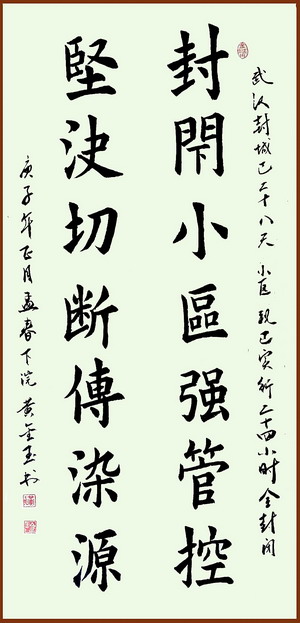 武汉封城已二十八天 小区现已实行二十四小时全封闭
封閇小區强管控
堅決切断傳染源
庚子年正月孟春下浣 黄金玉书